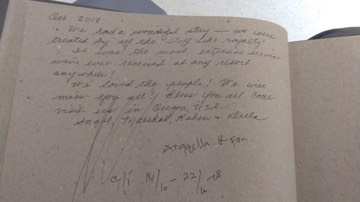 Oct 2018
We had a wonderful stay — we were
treated by all the staff like royalty!
It was the most extensive service
we've ever received at any resort
anywhere!
We loved the people! We will
miss you all! Bless you all. Come
visit us in Oregon, USA.
Angel, Marshal, Kaben &
&
C/i 14/10 - 22/10 18